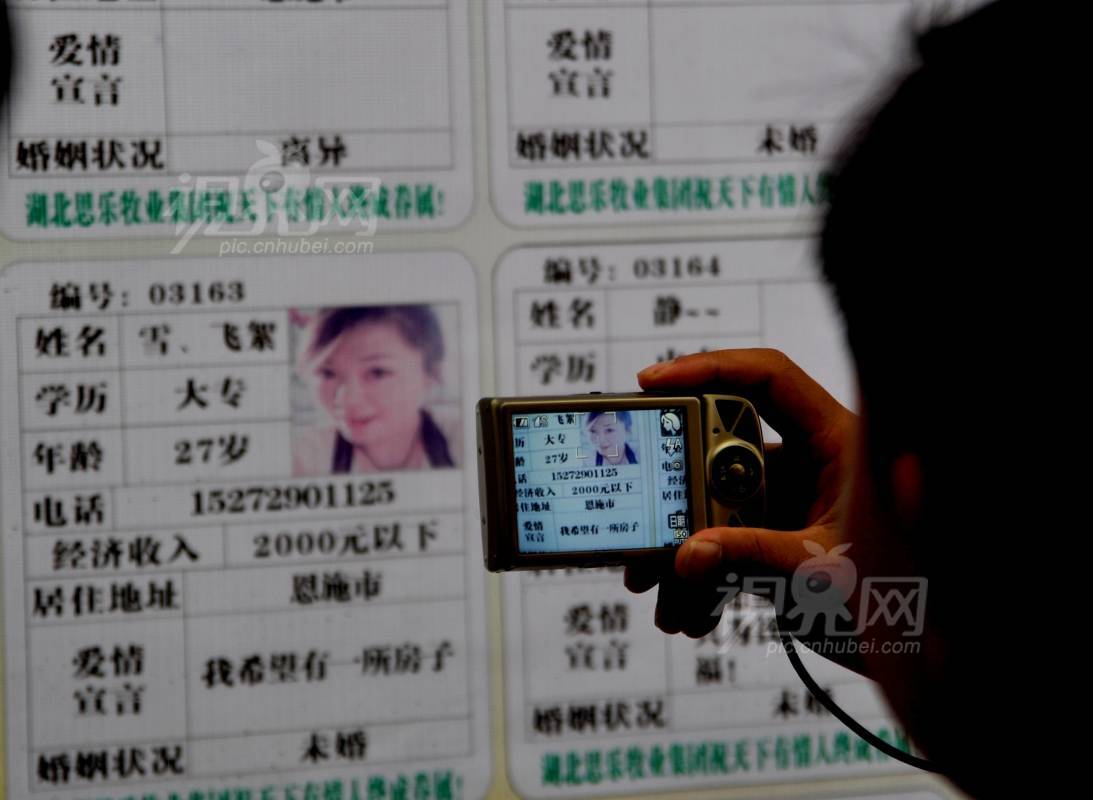 爱情
宣言
婚姻状况 离异
湖北思乐牧业集团祝天下有情人终成眷属!
爱情
宣言
婚姻状况 未婚
湖北思乐牧业集团祝天下有情人终
视界网
pic.cnhubei.com
编号: 03163
姓名 雪、飞絮
学历 大专
年龄 27岁
电话 15272901125
经济收入 2000元以下
居住地址 恩施市
爱情
宣言
我希望有一所房子
婚姻状况 未婚
编号: 03164
姓名 静~~
学历
飞絮
历 大专
龄 27岁
话 15272901125
经济收入 2000元以下
居住地址 恩施市
爱情
宣言
我希望有一所房子
日期
ISO
爱情
宣言
福!
婚姻状况 未婚
湖北思乐牧业集团祝天下有情人终成眷
视界网
pic.cnhubei.com